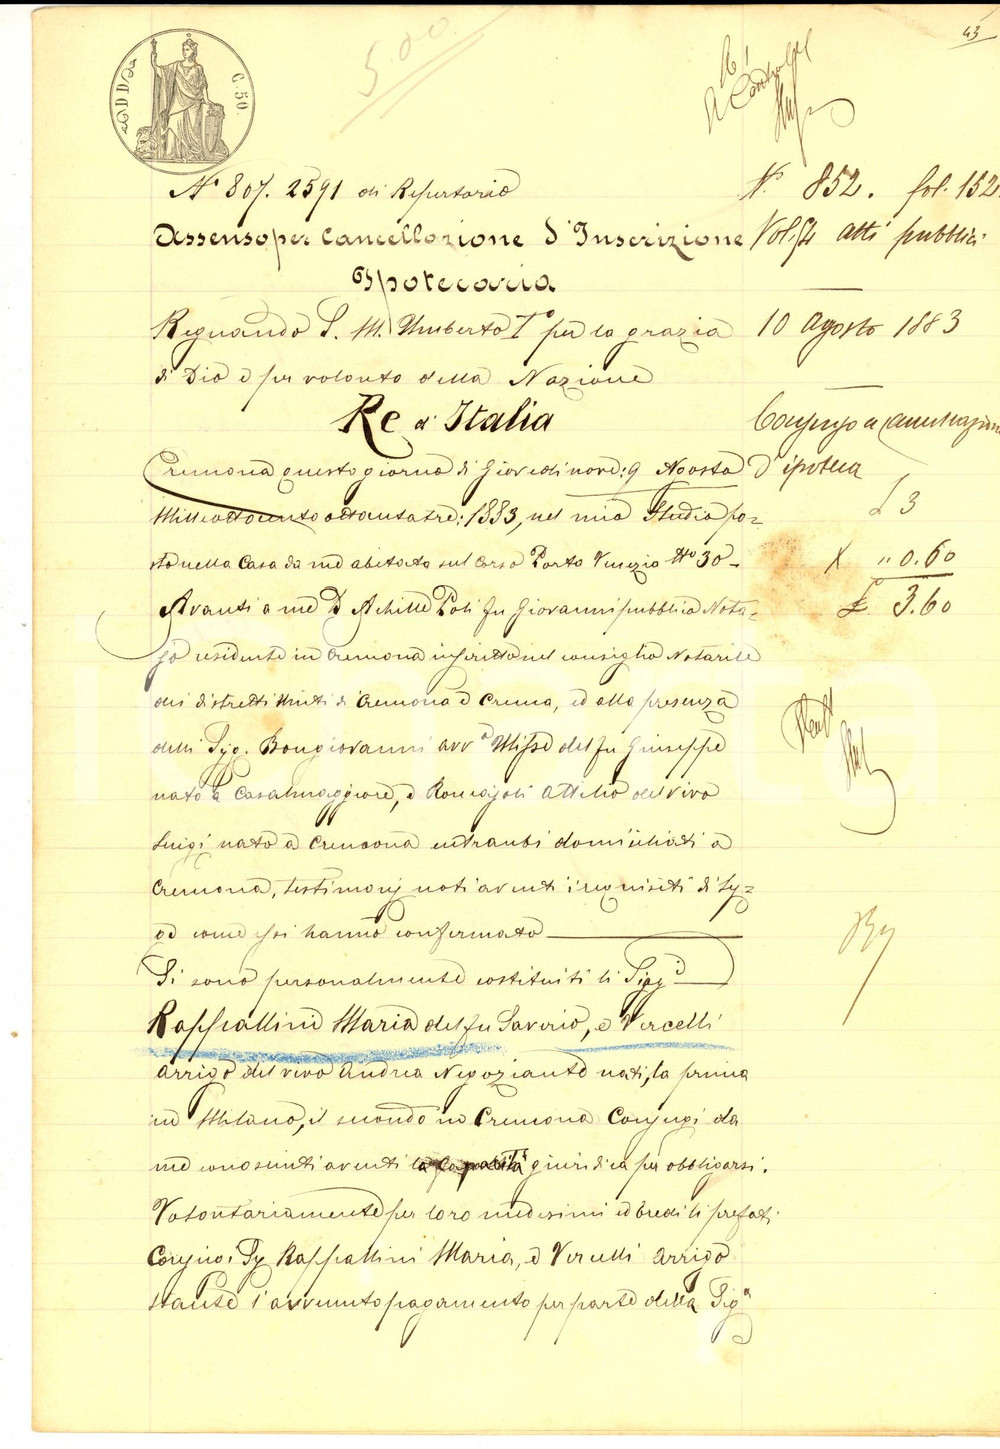 43
5.00
C. 50.
N° 807. 2591 di Repertorio
Assenso per Cancellazione d'Inscrizione
Ipotecaria
Regnando S. M. Umberto I° per la grazia
di Dio e per volontà della Nazione
Re d'Italia
Cremona questo giorno di Giovedì nove: 9 Agosto
Milleottocento ottantatre: 1883, nel mio Studio po=
sto nella Casa da me abitata sul Corso Porta Venezia N° 30 -
Avanti a me Dr Achille Poli fu Giovanni pubblico Nota=
jo residente in Cremona inscritto nel consiglio Notarile
dei distretti Uniti di Cremona e Crema, ed alla presenza
delli Sig. Bongiovanni avv° Ulisse del fu Giuseppe
nato a Casalmaggiore, e Romagnoli Attilio del vivo
Luigi nato a Cremona entrambi domiciliati a
Cremona, testimonj noti aventi i requisiti di leg=
ge come essi hanno confermato
Si sono personalmente costituiti li Sigg.i
Raspallini Maria del fu Saverio, e Vercelli
Arrigo del vivo Andrea Negoziante nati, la prima
in Milano, il secondo in Cremona Conjugi da
me conosciuti aventi la capacità giuridica per obbligarsi.
Volontariamente per loro medesimi ed Eredi li prefati
Conjugi Sig Raspallini Maria, e Vercelli Arrigo
stante l'avvenuto pagamento per parte della Sig.a
N° 852. fol. 152.
Vol. 54 atti pubblici
10 Agosto 1883
d'ipoteca
£ 3
X " 0.60
£ 3.60